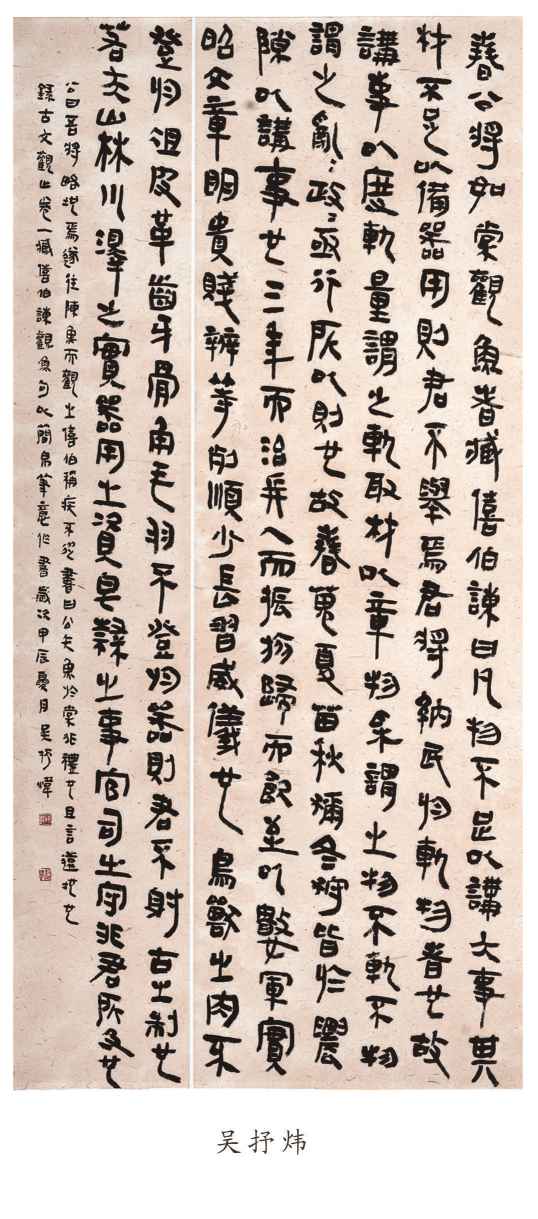 春公將如棠觀魚者臧僖伯諫曰凡物不足以講大事其
材不足以備器用則君不舉焉君將納民於軌物者也故
講事以度軌量謂之軌取材以章物采謂之物不軌不物
謂之亂〻政〻亟行所以敗也故春蒐夏苗秋獮冬狩皆於農
隙以講事也三年而治兵入而振旅歸而飲至以數軍實
昭文章明貴賤辨等列順少長習威儀也鳥獸之肉不
登於俎皮革齒牙骨角毛羽不登於器則君不射古之制也
若夫山林川澤之實器用之資皂隸之事官司之守非君所及也
公曰吾將略地焉遂往陳魚而觀之僖伯稱疾不從書曰公矢魚於棠非禮也且言遠地也
錄古文觀止卷一臧僖伯諫觀魚句以簡帛筆意作書歲次甲辰夏月吳抒煒
吴抒炜